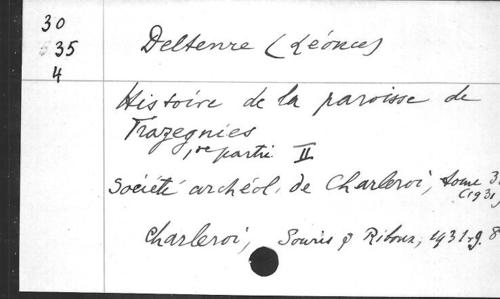 30
35
4
Deltenre (Léonce)
Histoire de la paroisse de
Trazegnies
1re partie II
Société archéol. de Charleroi, tome
(1931)
Charleroi, Souris & 1931